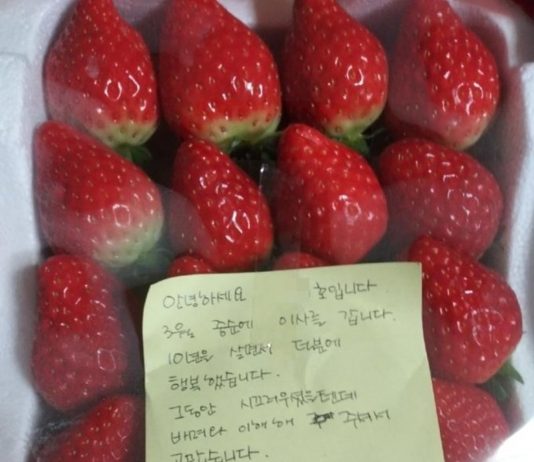 안녕하세요 호입니다.
3월 중순에 이사를 갑니다.
10년을 살면서 덕분에
행복했습니다.
그동안 시끄러우셨을텐데
배려와 이해해 주셔서
고맙습니다.